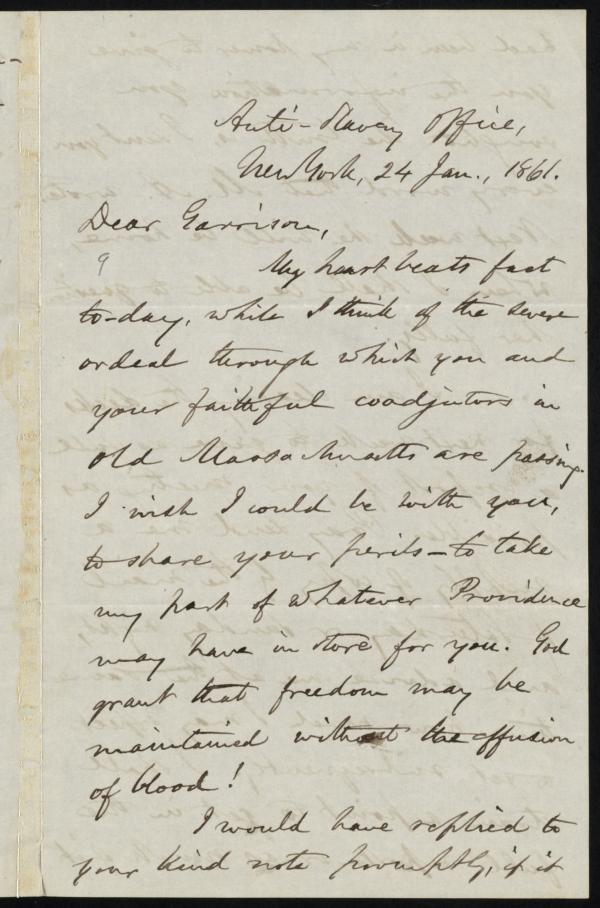 Anti-Slavery Office,
New York, 24 Jan., 1861.
Dear Garrison,
9
My heart beats fast
to-day, while I think of the severe
ordeal through which you and
your faithful coadjutors in
old Massachusetts are passing.
I wish I could be with you,
to share your perils—to take
my part of whatever Providence
may have in store for you. God
grant that freedom may be
maintained without the effusion
of blood!
I would have replied to
your kind note promptly, if it